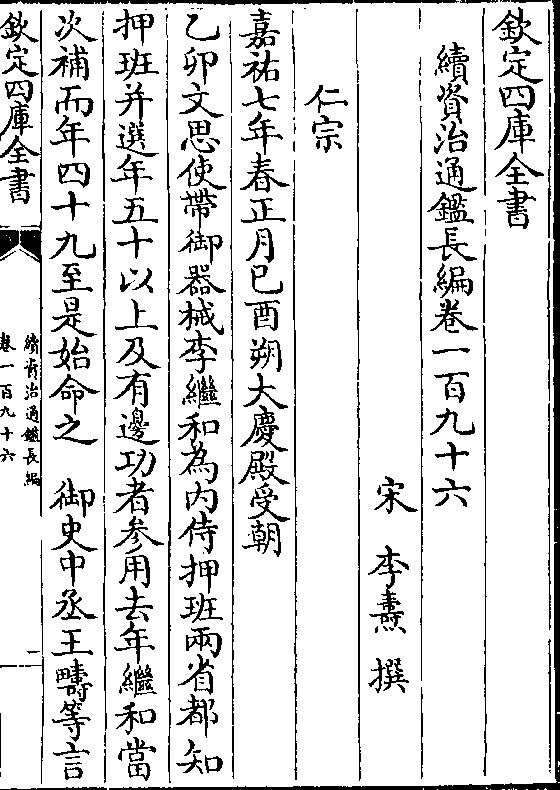 欽定四庫全書
續資治通鑑長編卷一百九十六
宋 李燾 撰
仁宗
嘉祐七年春正月己酉朔大慶殿受朝
乙卯文思使帶御器械李繼和為内侍押班兩省都知
押班并選年五十以上及有邊功者參用去年繼和當
次補而年四十九至是始命之 御史中丞王疇等言
欽定四庫全書
續資治通鑑長編
卷一百九十六
一